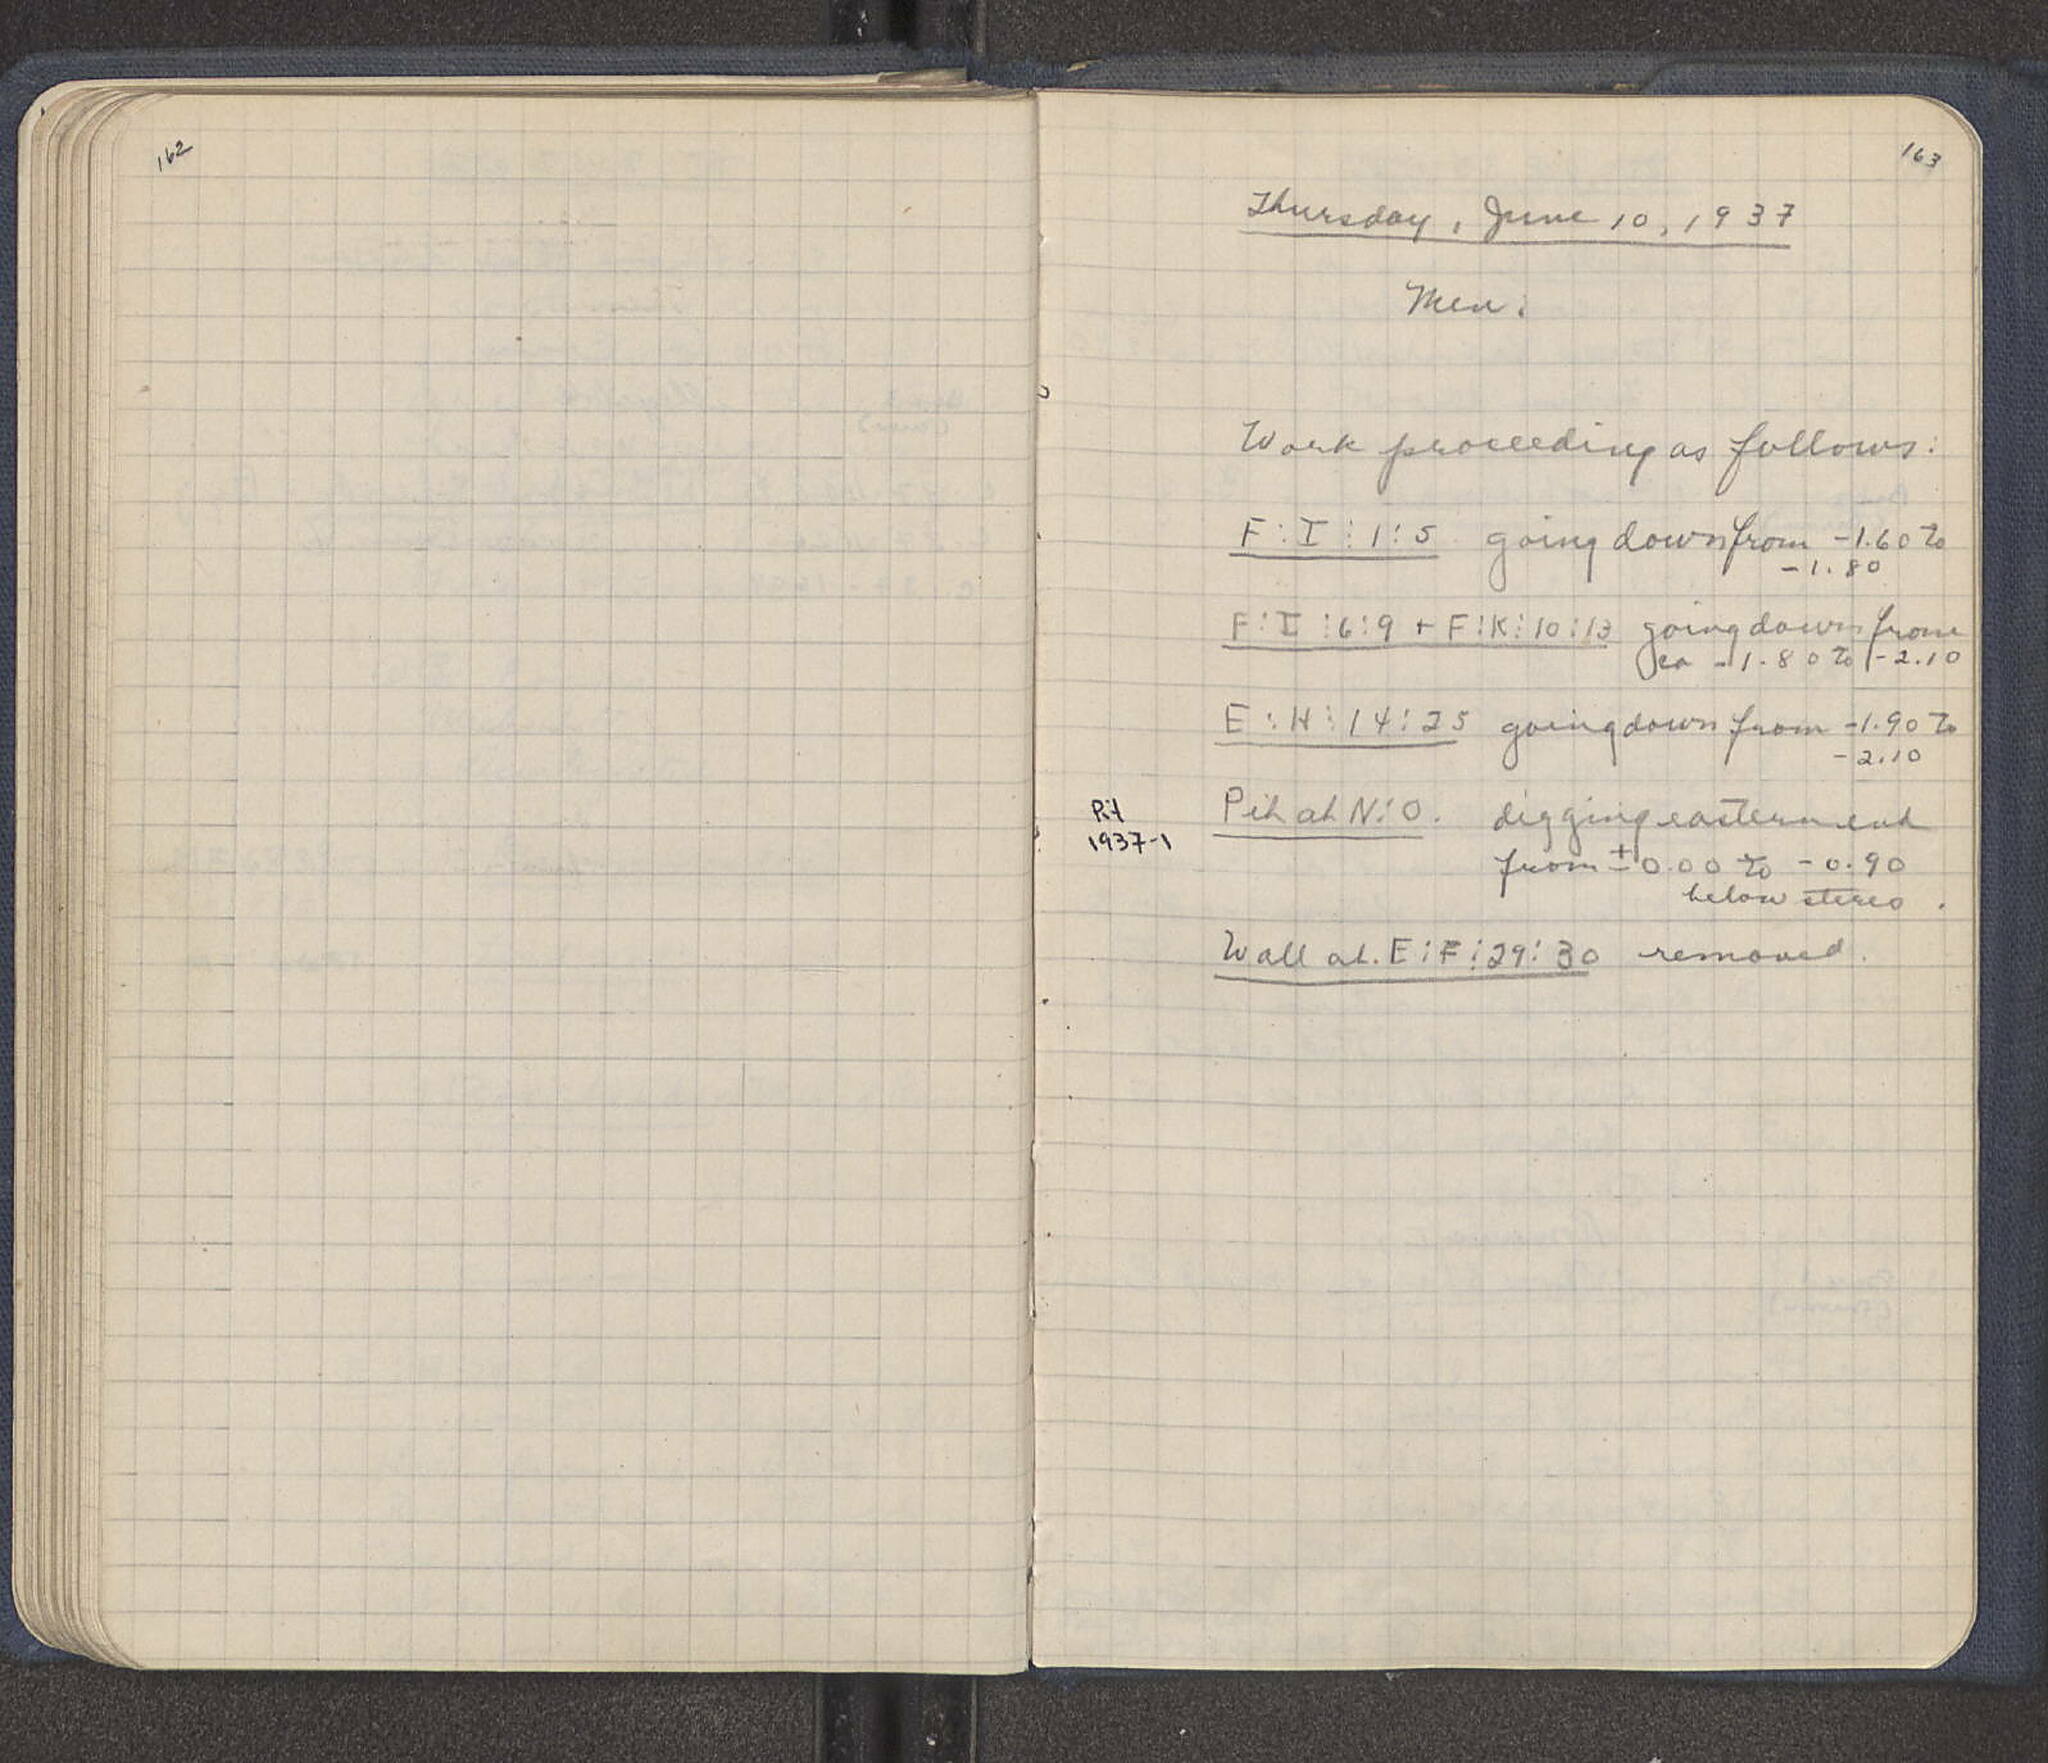 162
163
Thursday, June 10, 1937
Men:
Work proceeding as follows:
F:I:1:5 going down from -1.60 to
-1.80
F:I:6:9 + F:K:10:13 going down from
ca -1.80 to -2.10
E:H:14:25 going down from -1.90 to
-2.10
Pit 1937-1
Pit at N:O. digging eastern end
from ±0.00 to -0.90
below stereo.
Wall at E:F:29:30 removed.